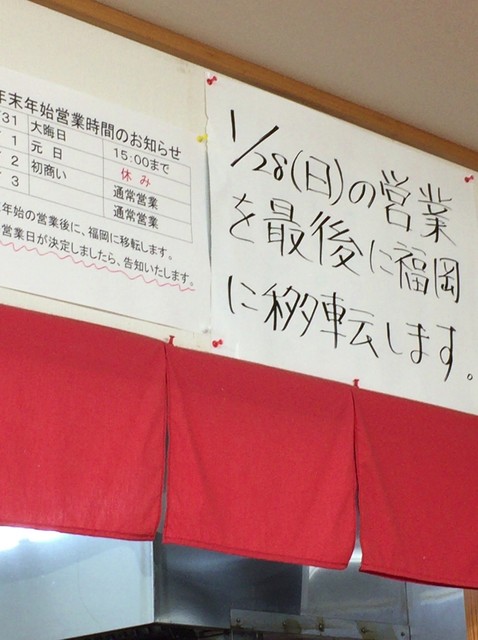 年末年始営業時間のお知らせ
31 大晦日 15:00まで
1 元日 休み
2 初商い 通常営業
3 通常営業
年始の営業後に、福岡に移転します。
営業日が決定しましたら、告知いたします。
1/28(日)の営業
を最後に福岡
に移転します。